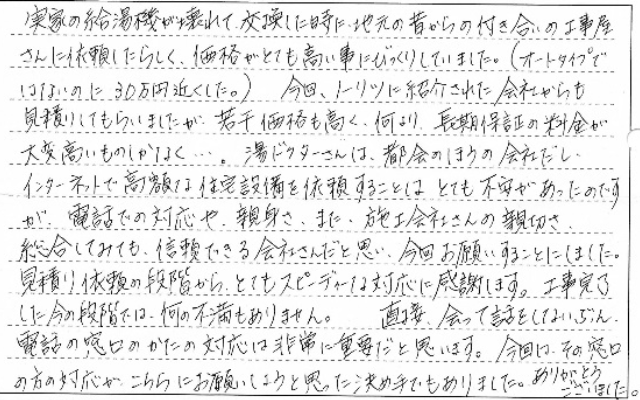 実家の給湯機が壊れて、交換した時に、地元の昔からの付き合いの工事屋
さんに依頼したらしく、価格がとても高い事にびっくりしていました。(オートタイプで
はないのに30万円近くした。) 今回、ノーリツに紹介された会社からも
見積りしてもらいましたが、若干価格も高く、何より、長期保証の料金が
大変高いものしかなく…。湯ドクターさんは、都会のほうの会社だし、
インターネットで高額な住宅設備を依頼することは、とても不安があったのです
が、電話での対応や、親身さ、また、施工会社さんの親切さ、
総合してみても、信頼できる会社さんだと思い、今回お願いすることにしました。
見積り依頼の段階から、とてもスピーディーな対応に感謝します。工事完了
した今の段階では、何の不満もありません。 直接、会って話をしないぶん、
電話の窓口のかたの対応は非常に重要だと思います。今回は、その窓口
の方の対応が、こちらにお願いしようと思った決め手でもありました。ありがとう
ございました。